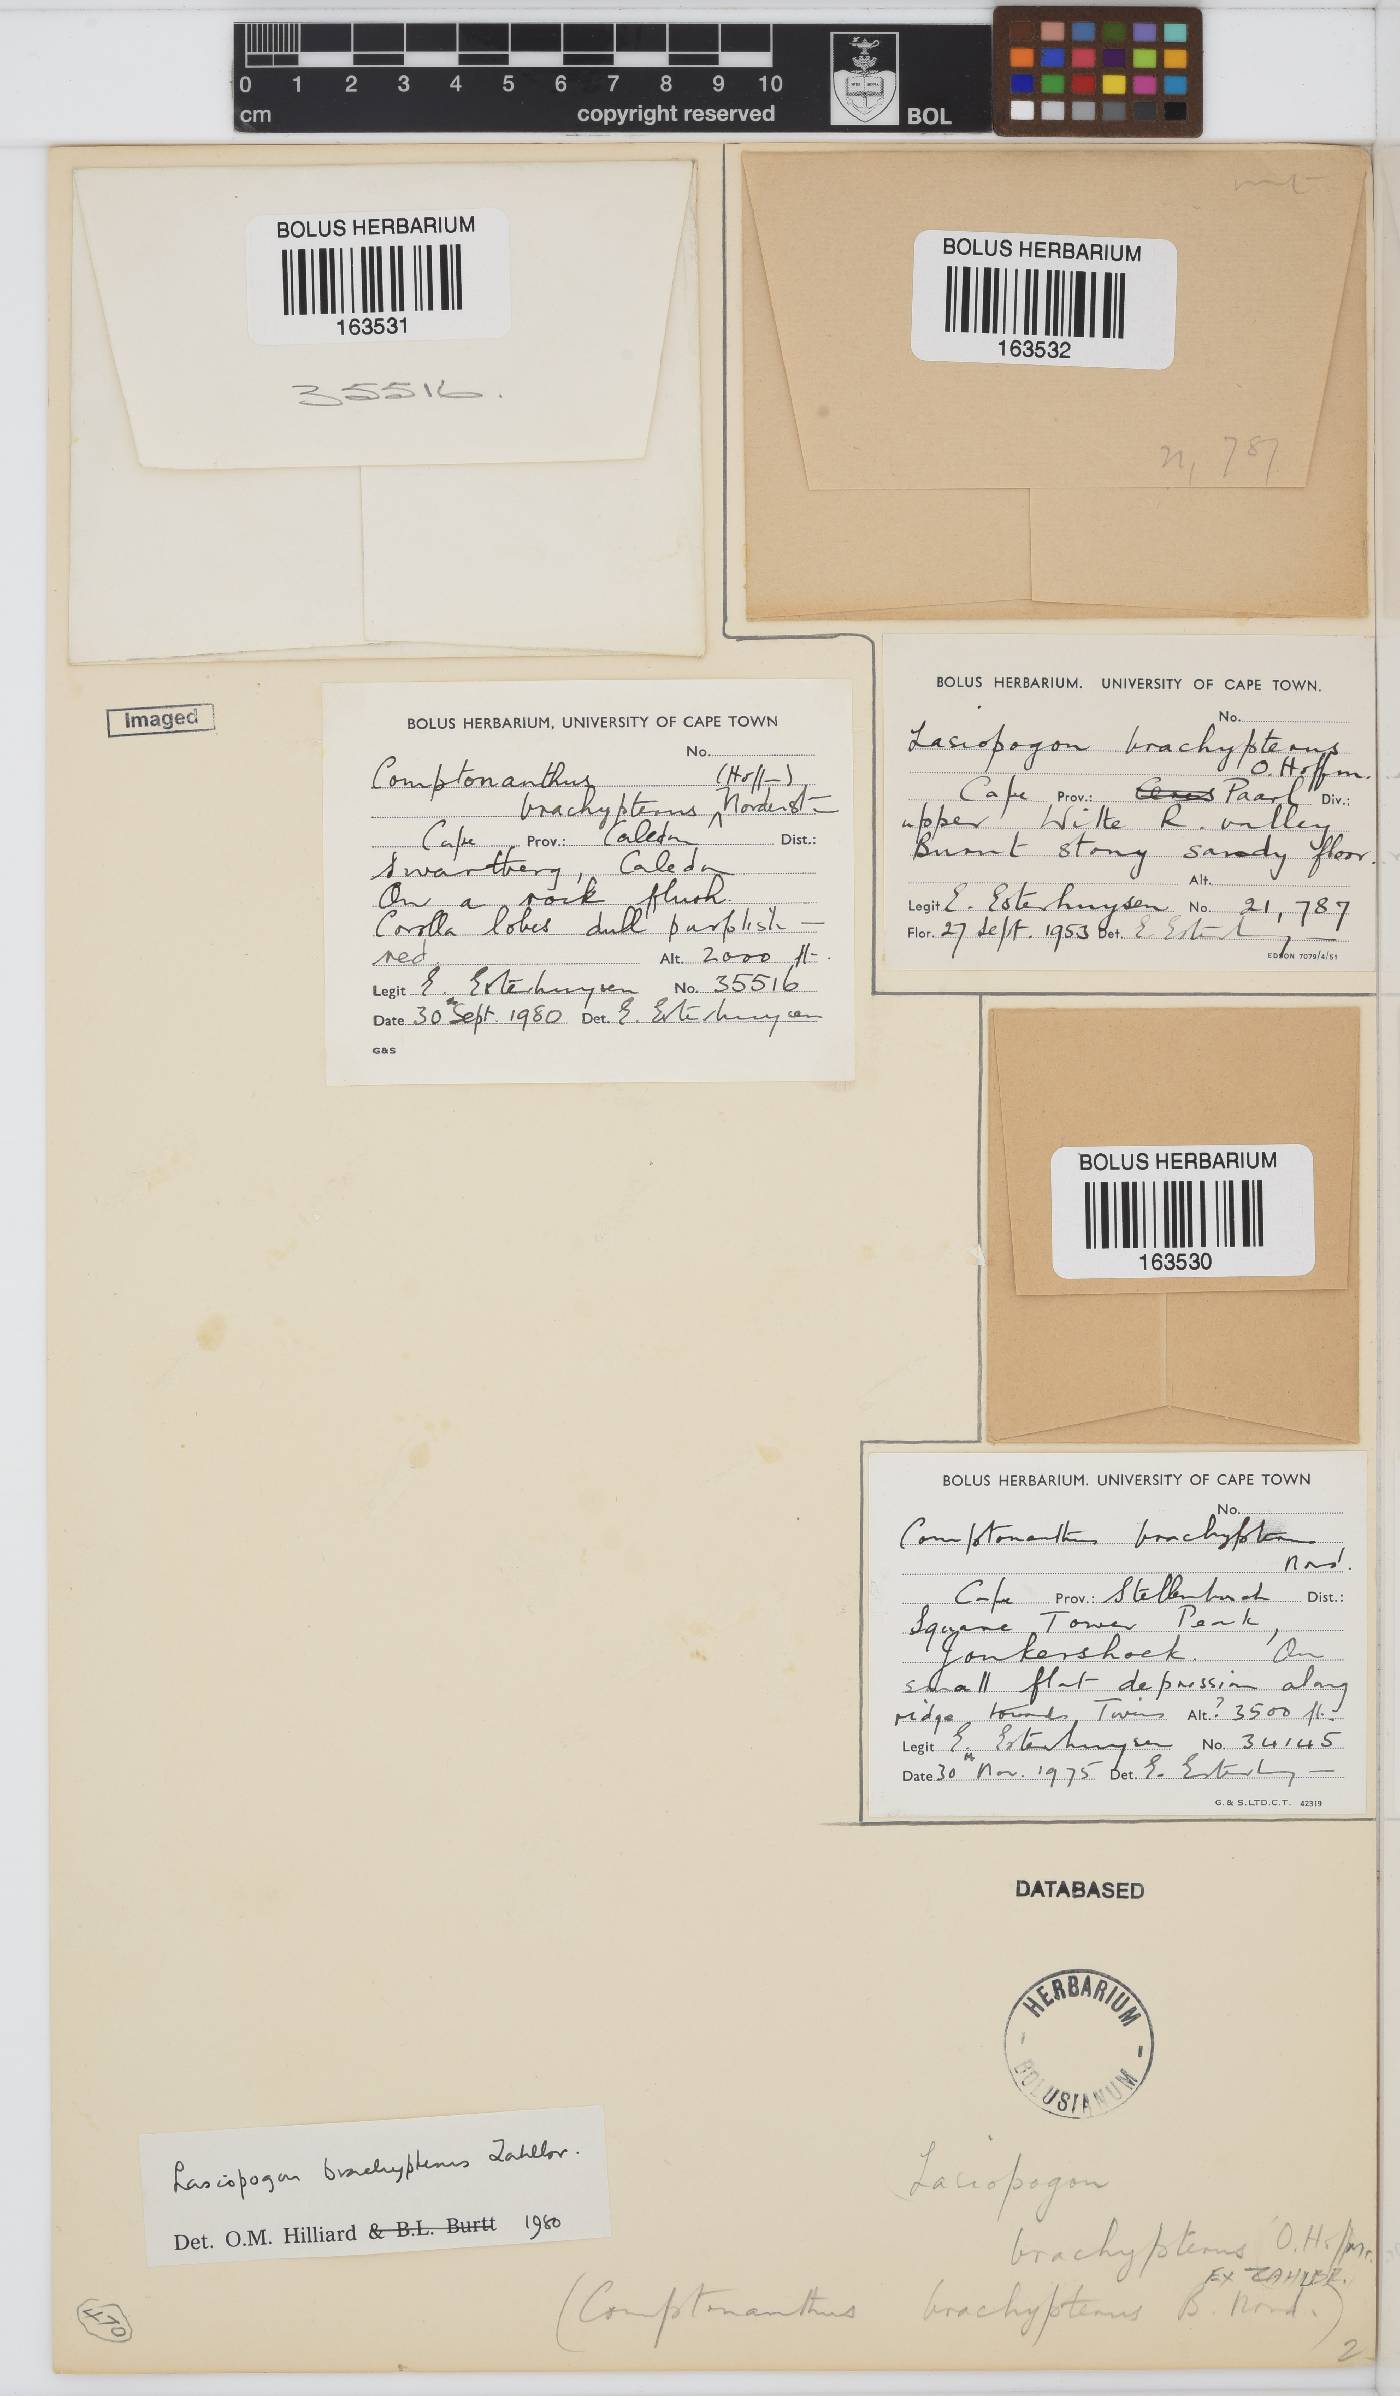 0 1 2 3 4 5 6 7 8 9 10
cm
copyright reserved
BOL
BOLUS HERBARIUM
163531
35516.
BOLUS HERBARIUM
163532
21,787
Imaged
BOLUS HERBARIUM, UNIVERSITY OF CAPE TOWN
No.
Comptonanthus (Hoff—)
brachypterus Nordenst—
Cape Prov.: Caledon Dist.:
Swartberg, Caledon
On a rock flush.
Corolla lobes dull purplish —
red. Alt. 2000 ft.
Legit E. Esterhuysen No. 35516
Date 30 Sept. 1980 Det. E. Esterhuysen
G&S
BOLUS HERBARIUM. UNIVERSITY OF CAPE TOWN.
No.
Lasiopogon brachypterus
O. Hoffm.
Cape Prov.: Ceres Paarl Div.:
upper Witte R. valley
Burnt stony sandy floor.
Alt.
Legit E. Esterhuysen No. 21,787
Flor. 27 Sept. 1953 Det. E. Esterhuy—
EDSON 7079/4/51
BOLUS HERBARIUM
163530
BOLUS HERBARIUM. UNIVERSITY OF CAPE TOWN
No.
Comptonanthus brachypterus
Nord.
Cape Prov.: Stellenbosch Dist.:
Square Tower Peak,
Jonkershoek. On
small flat depression along
ridge towards Twins Alt.? 3500 ft.
Legit E. Esterhuysen No. 34145
Date 30 Nov. 1975 Det. E. Esterhuy—
G. & S. LTD. C.T. 42319
DATABASED
HERBARIUM
BOLUSIANUM
Lasiopogon brachypterus Zahlbr.
Det. O.M. Hilliard & B.L. Burtt 1980
Lasiopogon
brachypterus O. Hoffm.
EX ZAHLBR.
(Comptonanthus brachypterus B. Nord.)
470
2